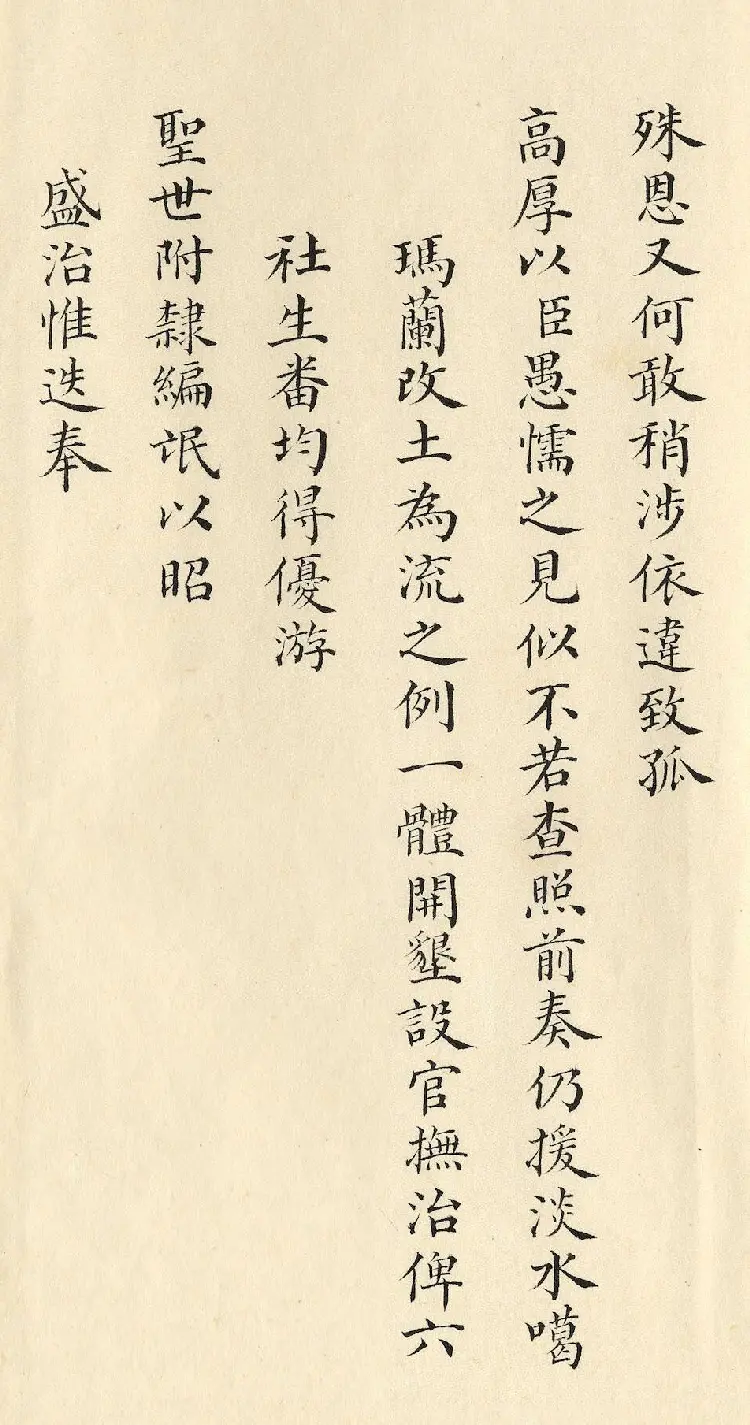 殊恩又何敢稍涉依違致孤
高厚以臣愚懦之見似不若查照前奏仍援淡水噶
瑪蘭改土為流之例一體開墾設官撫治俾六
社生番均得優游
聖世附隸編氓以昭
盛治惟迭奉